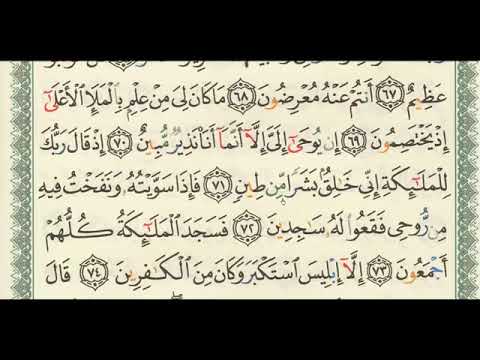 عَظِيمٌ ٦٧ أَنتُمْ عَنْهُ مُعْرِضُونَ ٦٨ مَا كَانَ لِىَ مِنْ عِلْمٍۭ بِٱلْمَلَإِ ٱلْأَعْلَىٰٓ
إِذْ يَخْتَصِمُونَ ٦٩ إِن يُوحَىٰٓ إِلَىَّ إِلَّآ أَنَّمَآ أَنَا۠ نَذِيرٌ مُّبِينٌ ٧٠ إِذْ قَالَ رَبُّكَ
لِلْمَلَٰٓئِكَةِ إِنِّى خَٰلِقٌۢ بَشَرًا مِّن طِينٍ ٧١ فَإِذَا سَوَّيْتُهُۥ وَنَفَخْتُ فِيهِ
مِن رُّوحِى فَقَعُوا۟ لَهُۥ سَٰجِدِينَ ٧٢ فَسَجَدَ ٱلْمَلَٰٓئِكَةُ كُلُّهُمْ
أَجْمَعُونَ ٧٣ إِلَّآ إِبْلِيسَ ٱسْتَكْبَرَ وَكَانَ مِنَ ٱلْكَٰفِرِينَ ٧٤ قَالَ